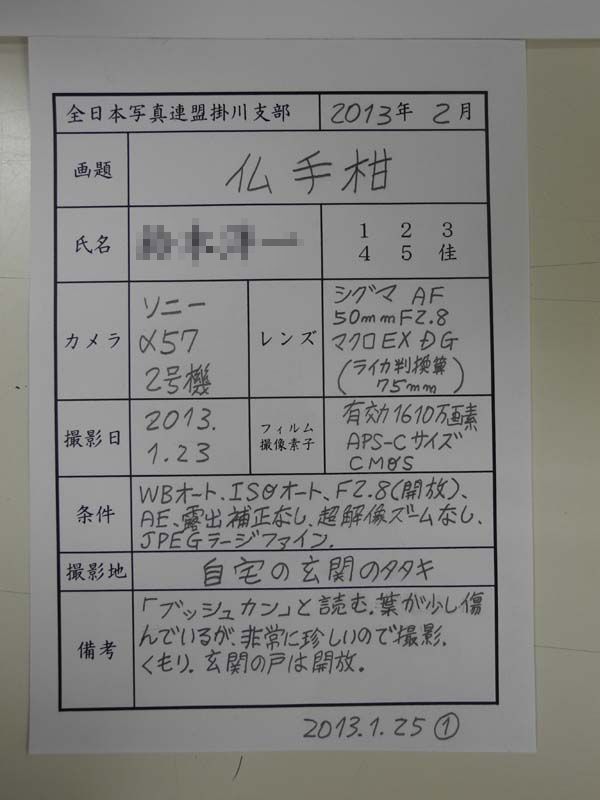 全日本写真連盟掛川支部 2013年 2月
画題 仏手柑
氏名
1 2 3
4 5 佳
カメラ
ソニー
α57
2号機
レンズ
シグマ AF
50mmF2.8
マクロEX DG
(ライカ判換算
75mm)
撮影日
2013.
1.23
フィルム
撮像素子
有効1610万画素
APS-Cサイズ
CMOS
条件
WBオート、ISOオート、F2.8(開放)、
AE、露出補正なし、超解像ズームなし、
JPEGラージファイン.
撮影地 自宅の玄関のタタキ
備考
「ブッシュカン」と読む。葉が少し傷
んでいるが、非常に珍しいので撮影.
くもり。玄関の戸は開放。
2013.1.25 ①